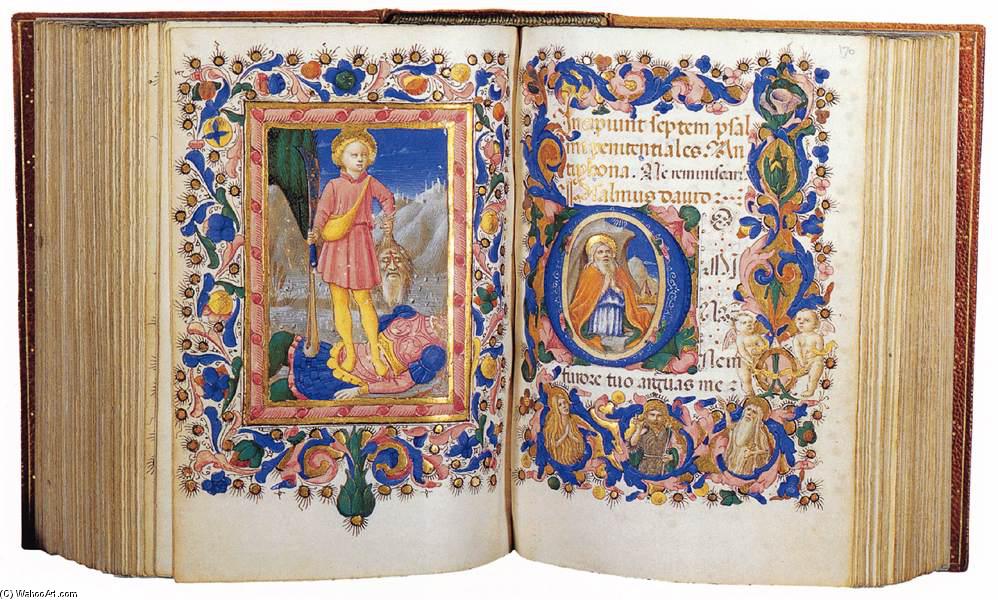 Incipiunt septem psal
mi penitentiales. An
tiphona. Ne reminiscaris
Psalmus dauid :
Ne in
furore tuo arguas me :
(C) WahooArt.com